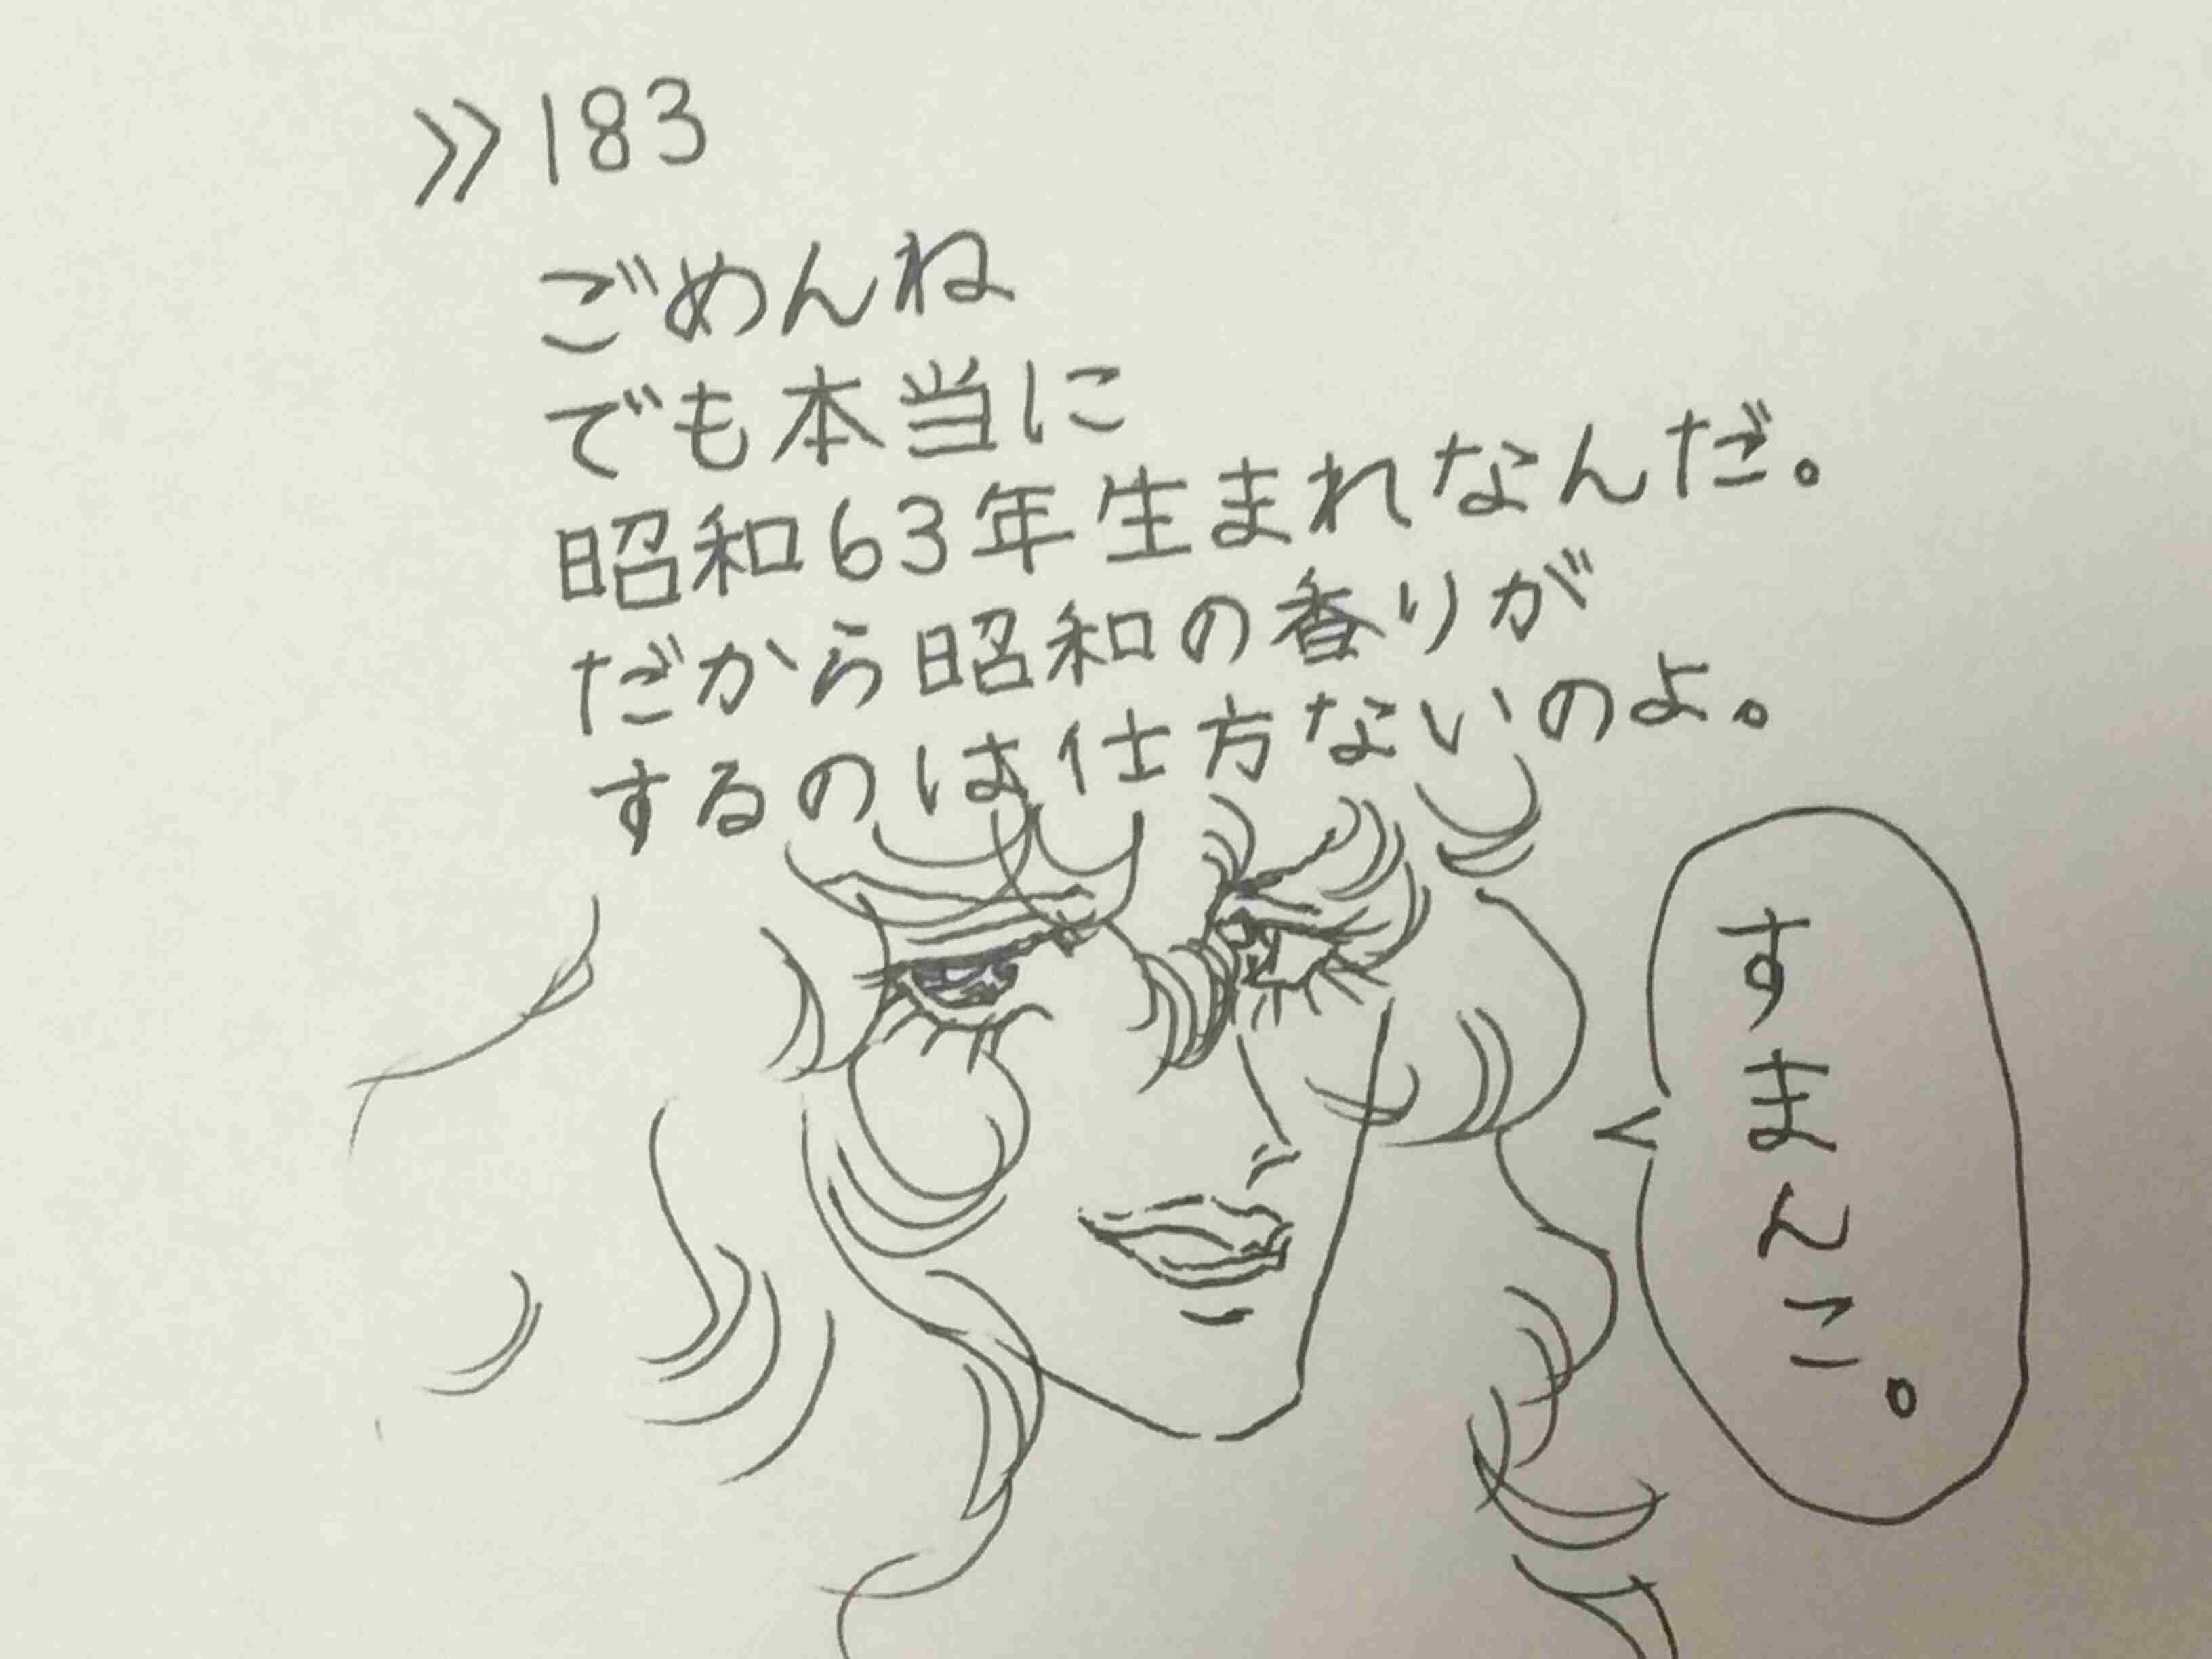 >>183
ごめんね
でも本当に
昭和63年生まれなんだ。
だから昭和の香りが
するのは仕方ないのよ。
すまんこ。